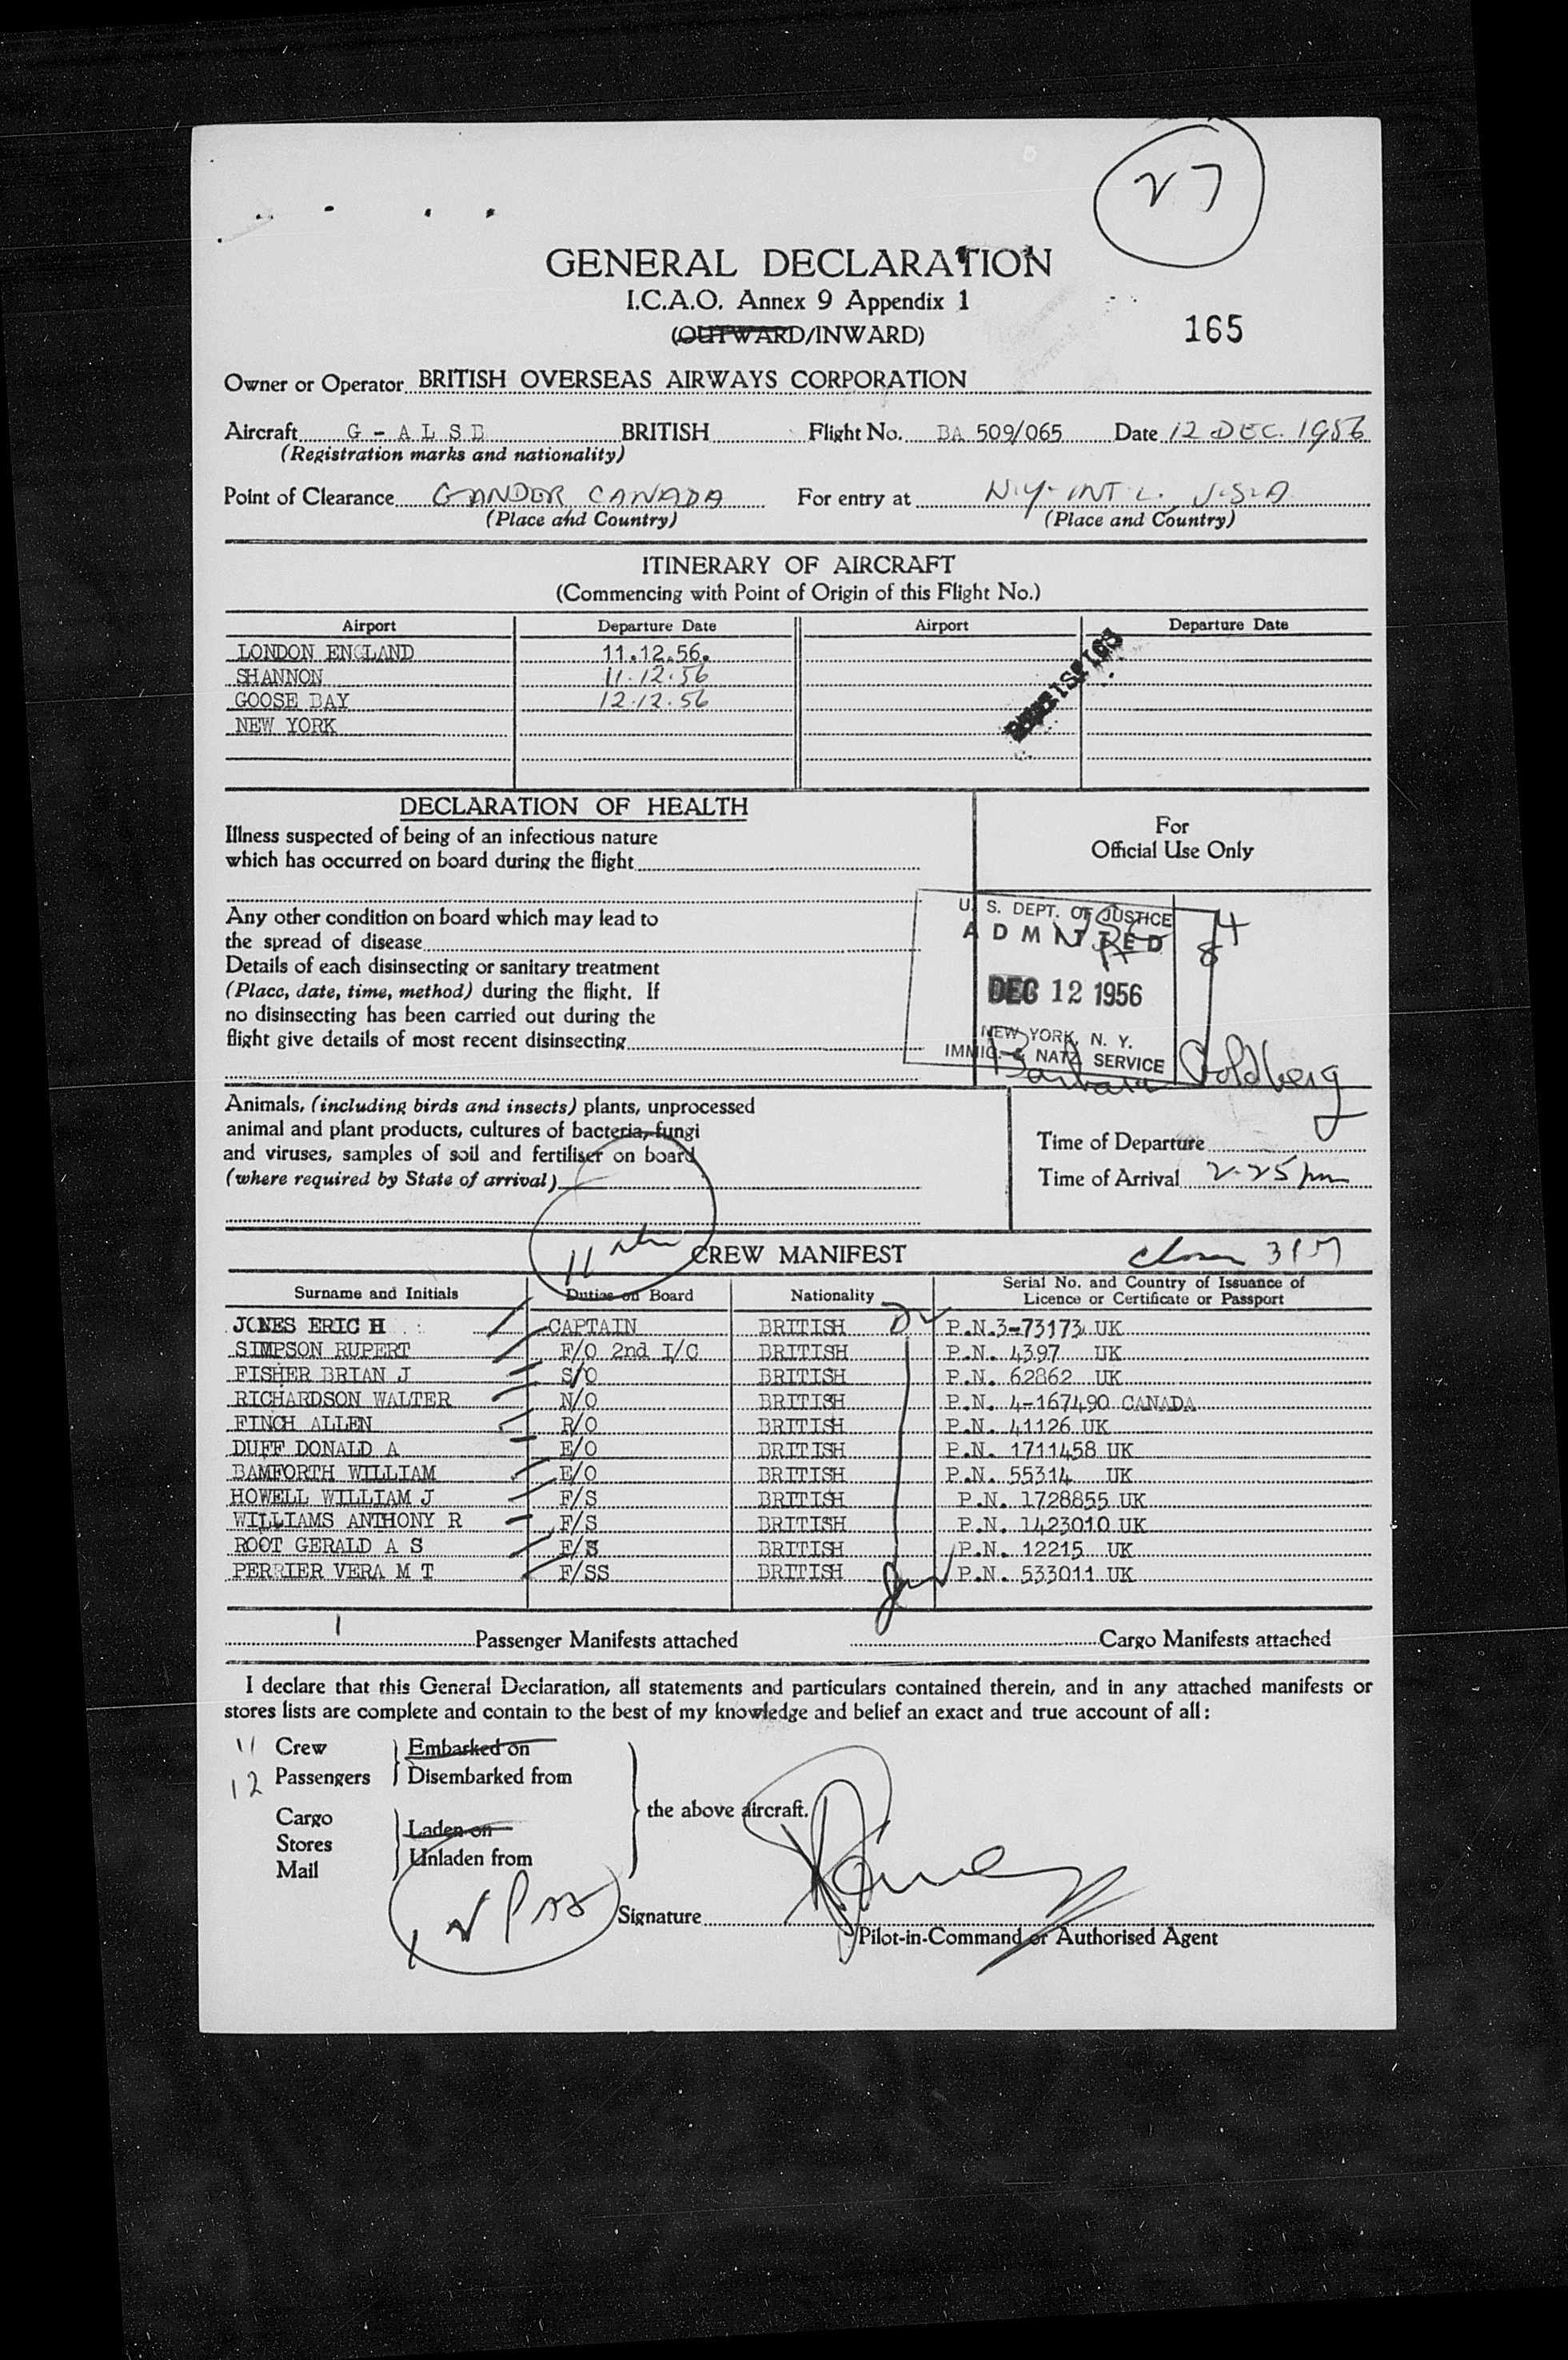 27
GENERAL DECLARATION
I.C.A.O. Annex 9 Appendix 1
(OUTWARD/INWARD)
165
Owner or Operator BRITISH OVERSEAS AIRWAYS CORPORATION
Aircraft G - A L S D BRITISH Flight No. BA 509/065 Date 12 DEC. 1956
(Registration marks and nationality)
Point of Clearance GANDER CANADA For entry at N.Y. INT'L. U.S.A.
(Place and Country) (Place and Country)
ITINERARY OF AIRCRAFT
(Commencing with Point of Origin of this Flight No.)
Airport Departure Date Airport Departure Date
LONDON ENGLAND 11.12.56.
SHANNON 11.12.56
GOOSE BAY 12.12.56
NEW YORK
DECLARATION OF HEALTH
Illness suspected of being of an infectious nature
which has occurred on board during the flight
For
Official Use Only
Any other condition on board which may lead to
the spread of disease
Details of each disinsecting or sanitary treatment
(Place, date, time, method) during the flight. If
no disinsecting has been carried out during the
flight give details of most recent disinsecting
U. S. DEPT. OF JUSTICE
ADMITTED
DEC 12 1956
NEW YORK, N. Y.
IMMIG. & NATZ. SERVICE
Barbara Goldberg
Animals, (including birds and insects) plants, unprocessed
animal and plant products, cultures of bacteria, fungi
and viruses, samples of soil and fertiliser on board
(where required by State of arrival)
Time of Departure
Time of Arrival 2.25 pm
11
CREW MANIFEST
Surname and Initials Duties on Board Nationality Serial No. and Country of Issuance of
Licence or Certificate or Passport
JONES ERIC H CAPTAIN BRITISH P.N.3-73173 UK
SIMPSON RUPERT F/O 2nd I/C BRITISH P.N. 4397 UK
FISHER BRIAN J S/O BRITISH P.N. 62862 UK
RICHARDSON WALTER N/O BRITISH P.N. 4-167490 CANADA
FINCH ALLEN R/O BRITISH P.N. 41126 UK
DUFF DONALD A E/O BRITISH P.N. 1711458 UK
BAMFORTH WILLIAM E/O BRITISH P.N. 55314 UK
HOWELL WILLIAM J F/S BRITISH P.N. 1728855 UK
WILLIAMS ANTHONY R F/S BRITISH P.N. 1423010 UK
ROOT GERALD A S F/S BRITISH P.N. 12215 UK
PERRIER VERA M T F/SS BRITISH P.N. 533011 UK
1 Passenger Manifests attached Cargo Manifests attached
I declare that this General Declaration, all statements and particulars contained therein, and in any attached manifests or
stores lists are complete and contain to the best of my knowledge and belief an exact and true account of all:
11 Crew Embarked on
12 Passengers Disembarked from
the above aircraft.
Cargo Laden on
Stores
Mail Unladen from
Signature
Pilot-in-Command or Authorised Agent